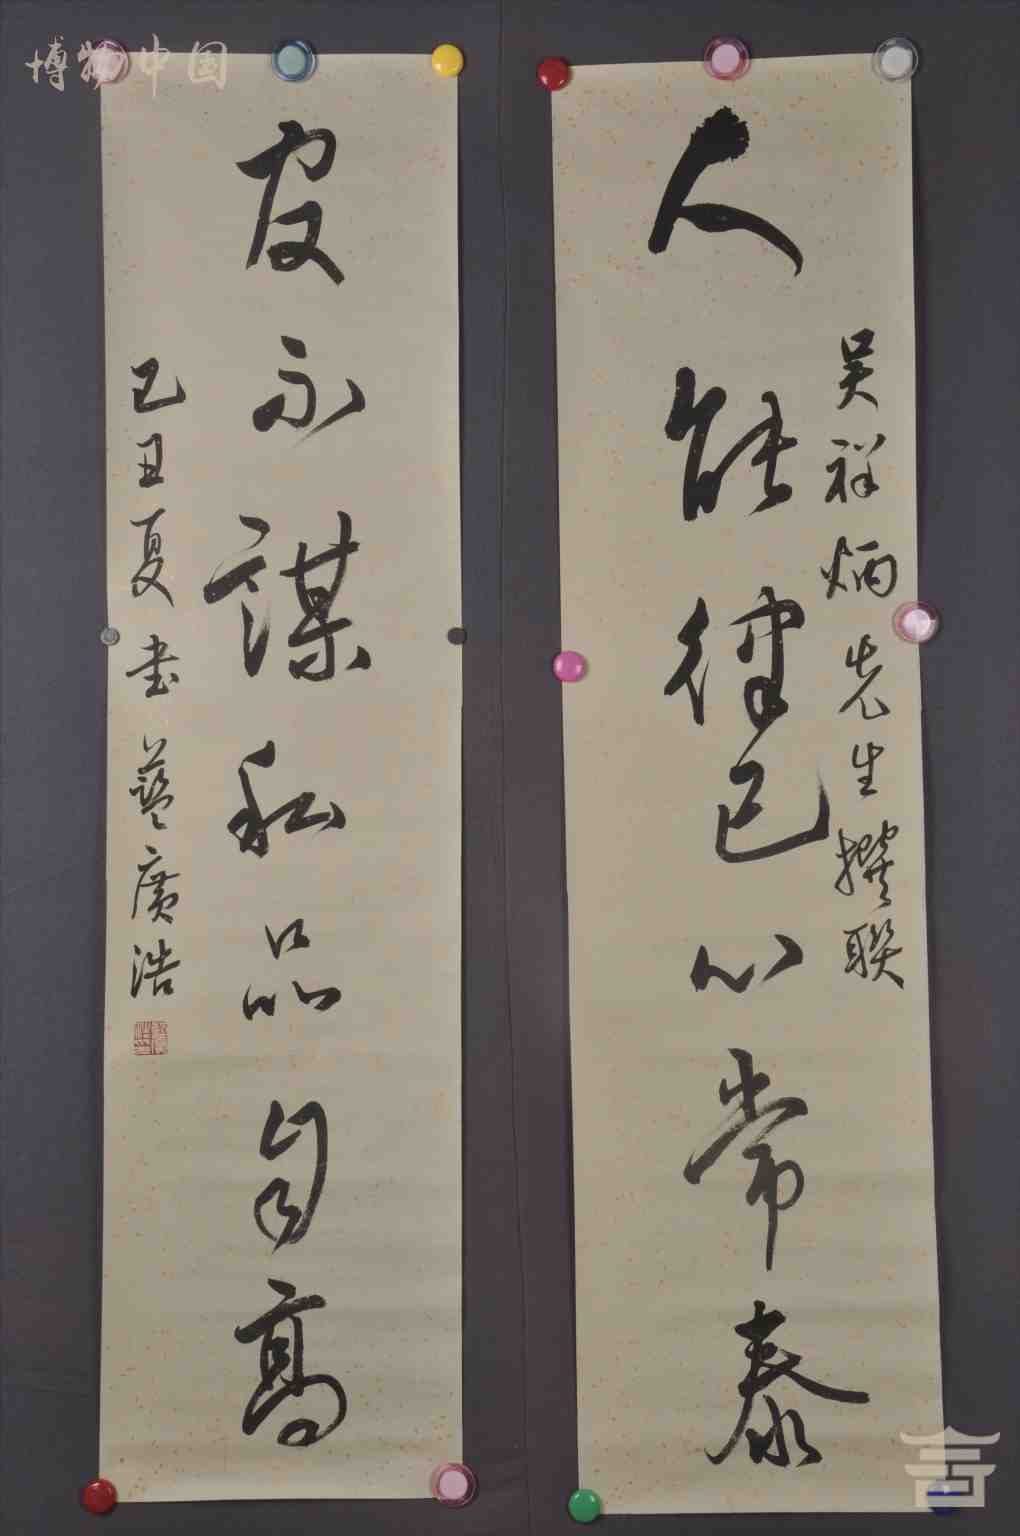 人能律己心常泰
吴祥炳先生撰联
官不谋私品自高
己丑夏书藝廣浩
博物中国